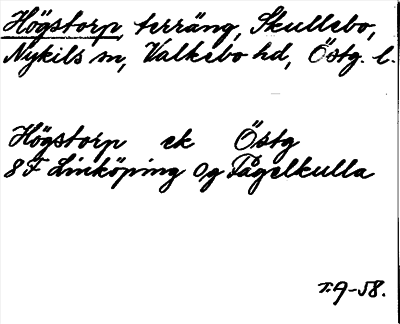 Högstorp, terräng, Skullebo,
Nykils sn, Valkebo hd, Östg. l.
Högstorp ek Östg
8 F Linköping 0g Fågelkulla
T.9-58.